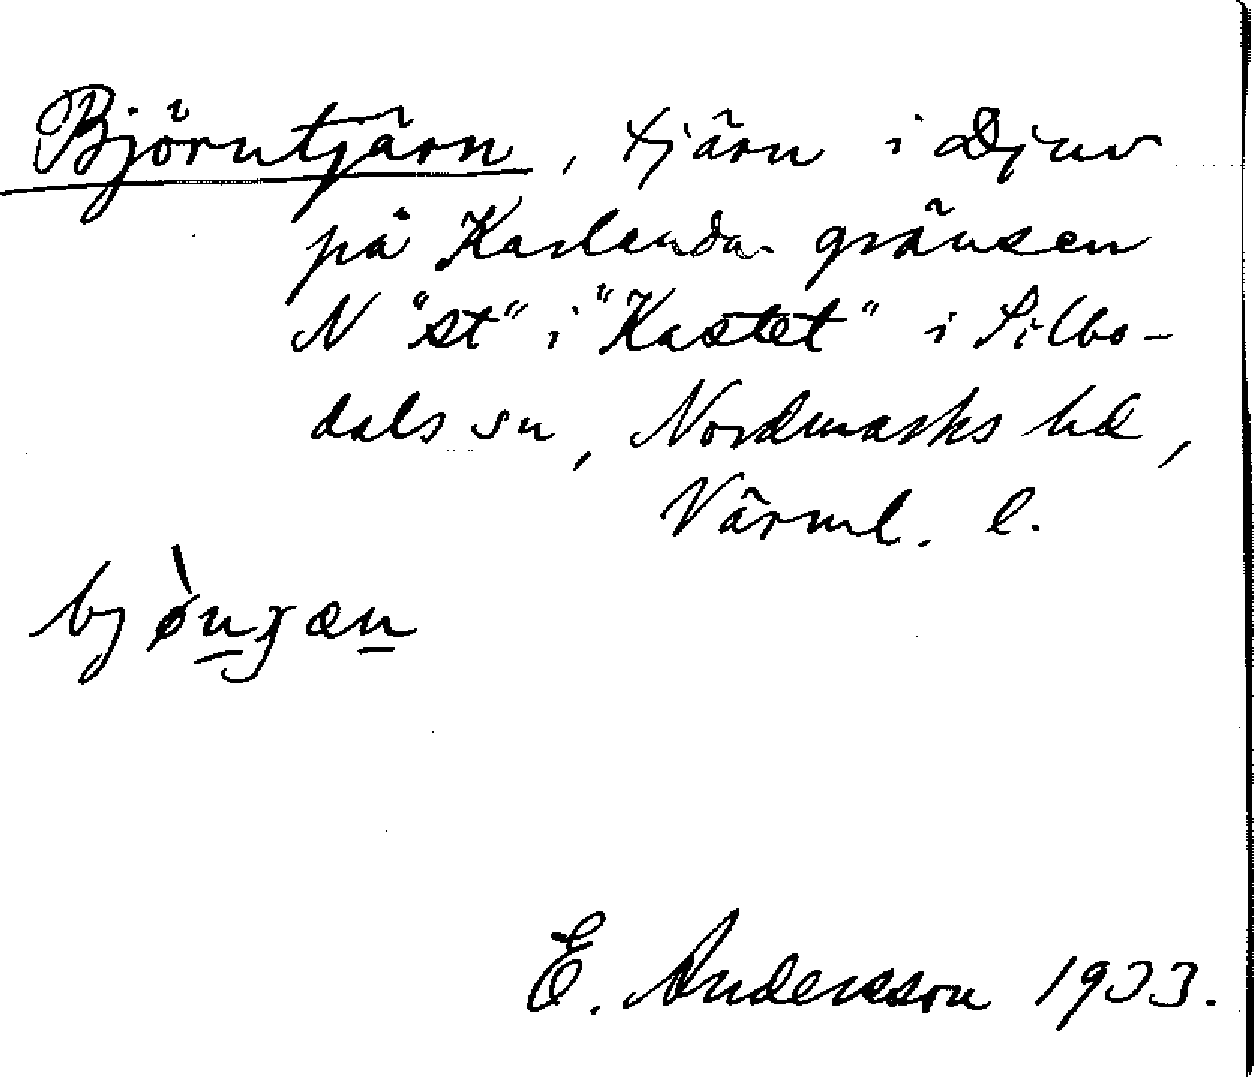 Björntjärn, tjärn i Djuv
på Karlanda gränsen
N "st" i "Kastet" i Silbo-
dals sn, Nordmarks hd,
Värml. l.
E. Andersson 1933.